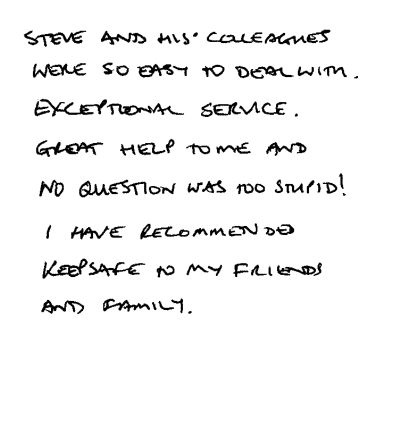 STEVE AND HIS' COLLEAGUES
WERE SO EASY TO DEAL WITH.
EXCEPTIONAL SERVICE.
GREAT HELP TO ME AND
NO QUESTION WAS TOO STUPID!
I HAVE RECOMMENDED
KEEPSAFE TO MY FRIENDS
AND FAMILY.